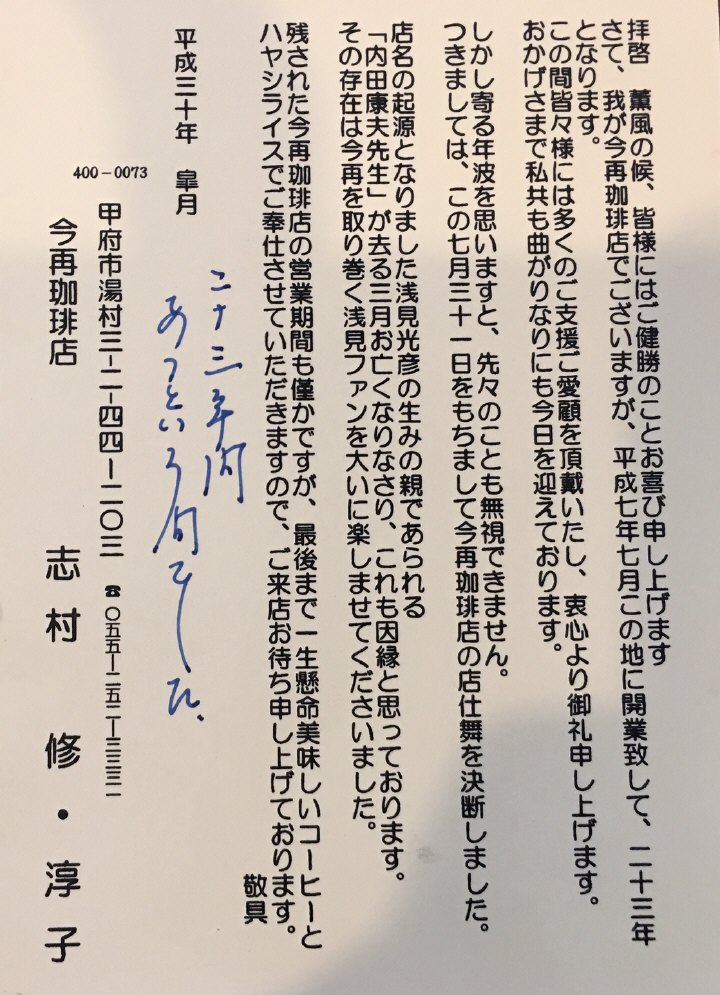 拝啓　薫風の候、皆様にはご健勝のことお喜び申し上げます
さて、我が今再珈琲店でございますが、平成七年七月この地に開業致して、二十三年
となります。
この間皆々様には多くのご支援ご愛顧を頂戴いたし、衷心より御礼申し上げます。
おかげさまで私共も曲がりなりにも今日を迎えております。
しかし寄る年波を思いますと、先々のことも無視できません。
つきましては、この七月三十一日をもちまして今再珈琲店の店仕舞を決断しました。
店名の起源となりました浅見光彦の生みの親であられる
「内田康夫先生」が去る三月お亡くなりなさり、これも因縁と思っております。
その存在は今再を取り巻く浅見ファンを大いに楽しませてくださいました。
残された今再珈琲店の営業期間も僅かですが、最後まで一生懸命美味しいコーヒーと
ハヤシライスでご奉仕させていただきますので、ご来店お待ち申し上げております。
敬具
平成三十年　皐月
二十三年間
あっという間でした、
400-0073
甲府市湯村三−二−四四−二〇三　☎〇五五−二五二−三三三一
今再珈琲店　志村　修・淳子